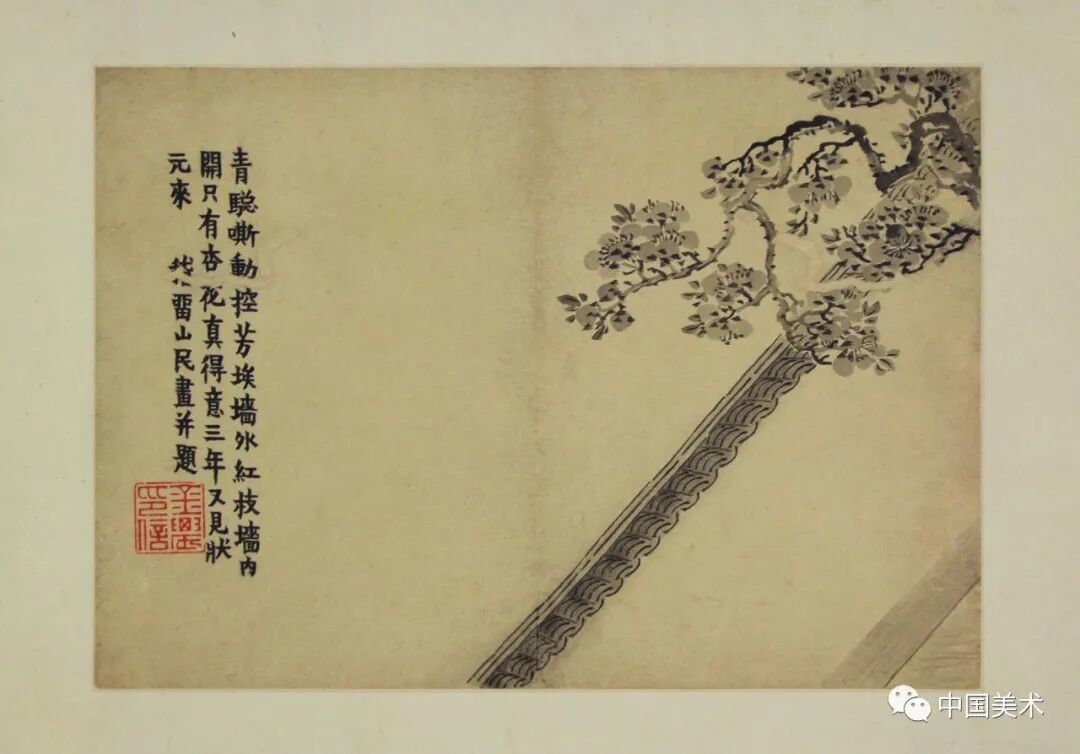 青騘嘶動控芳埃墻外紅枝墻内
開只有杏花真得意三年又見狀
元來 留山民畫并題
金農印信
中国美术